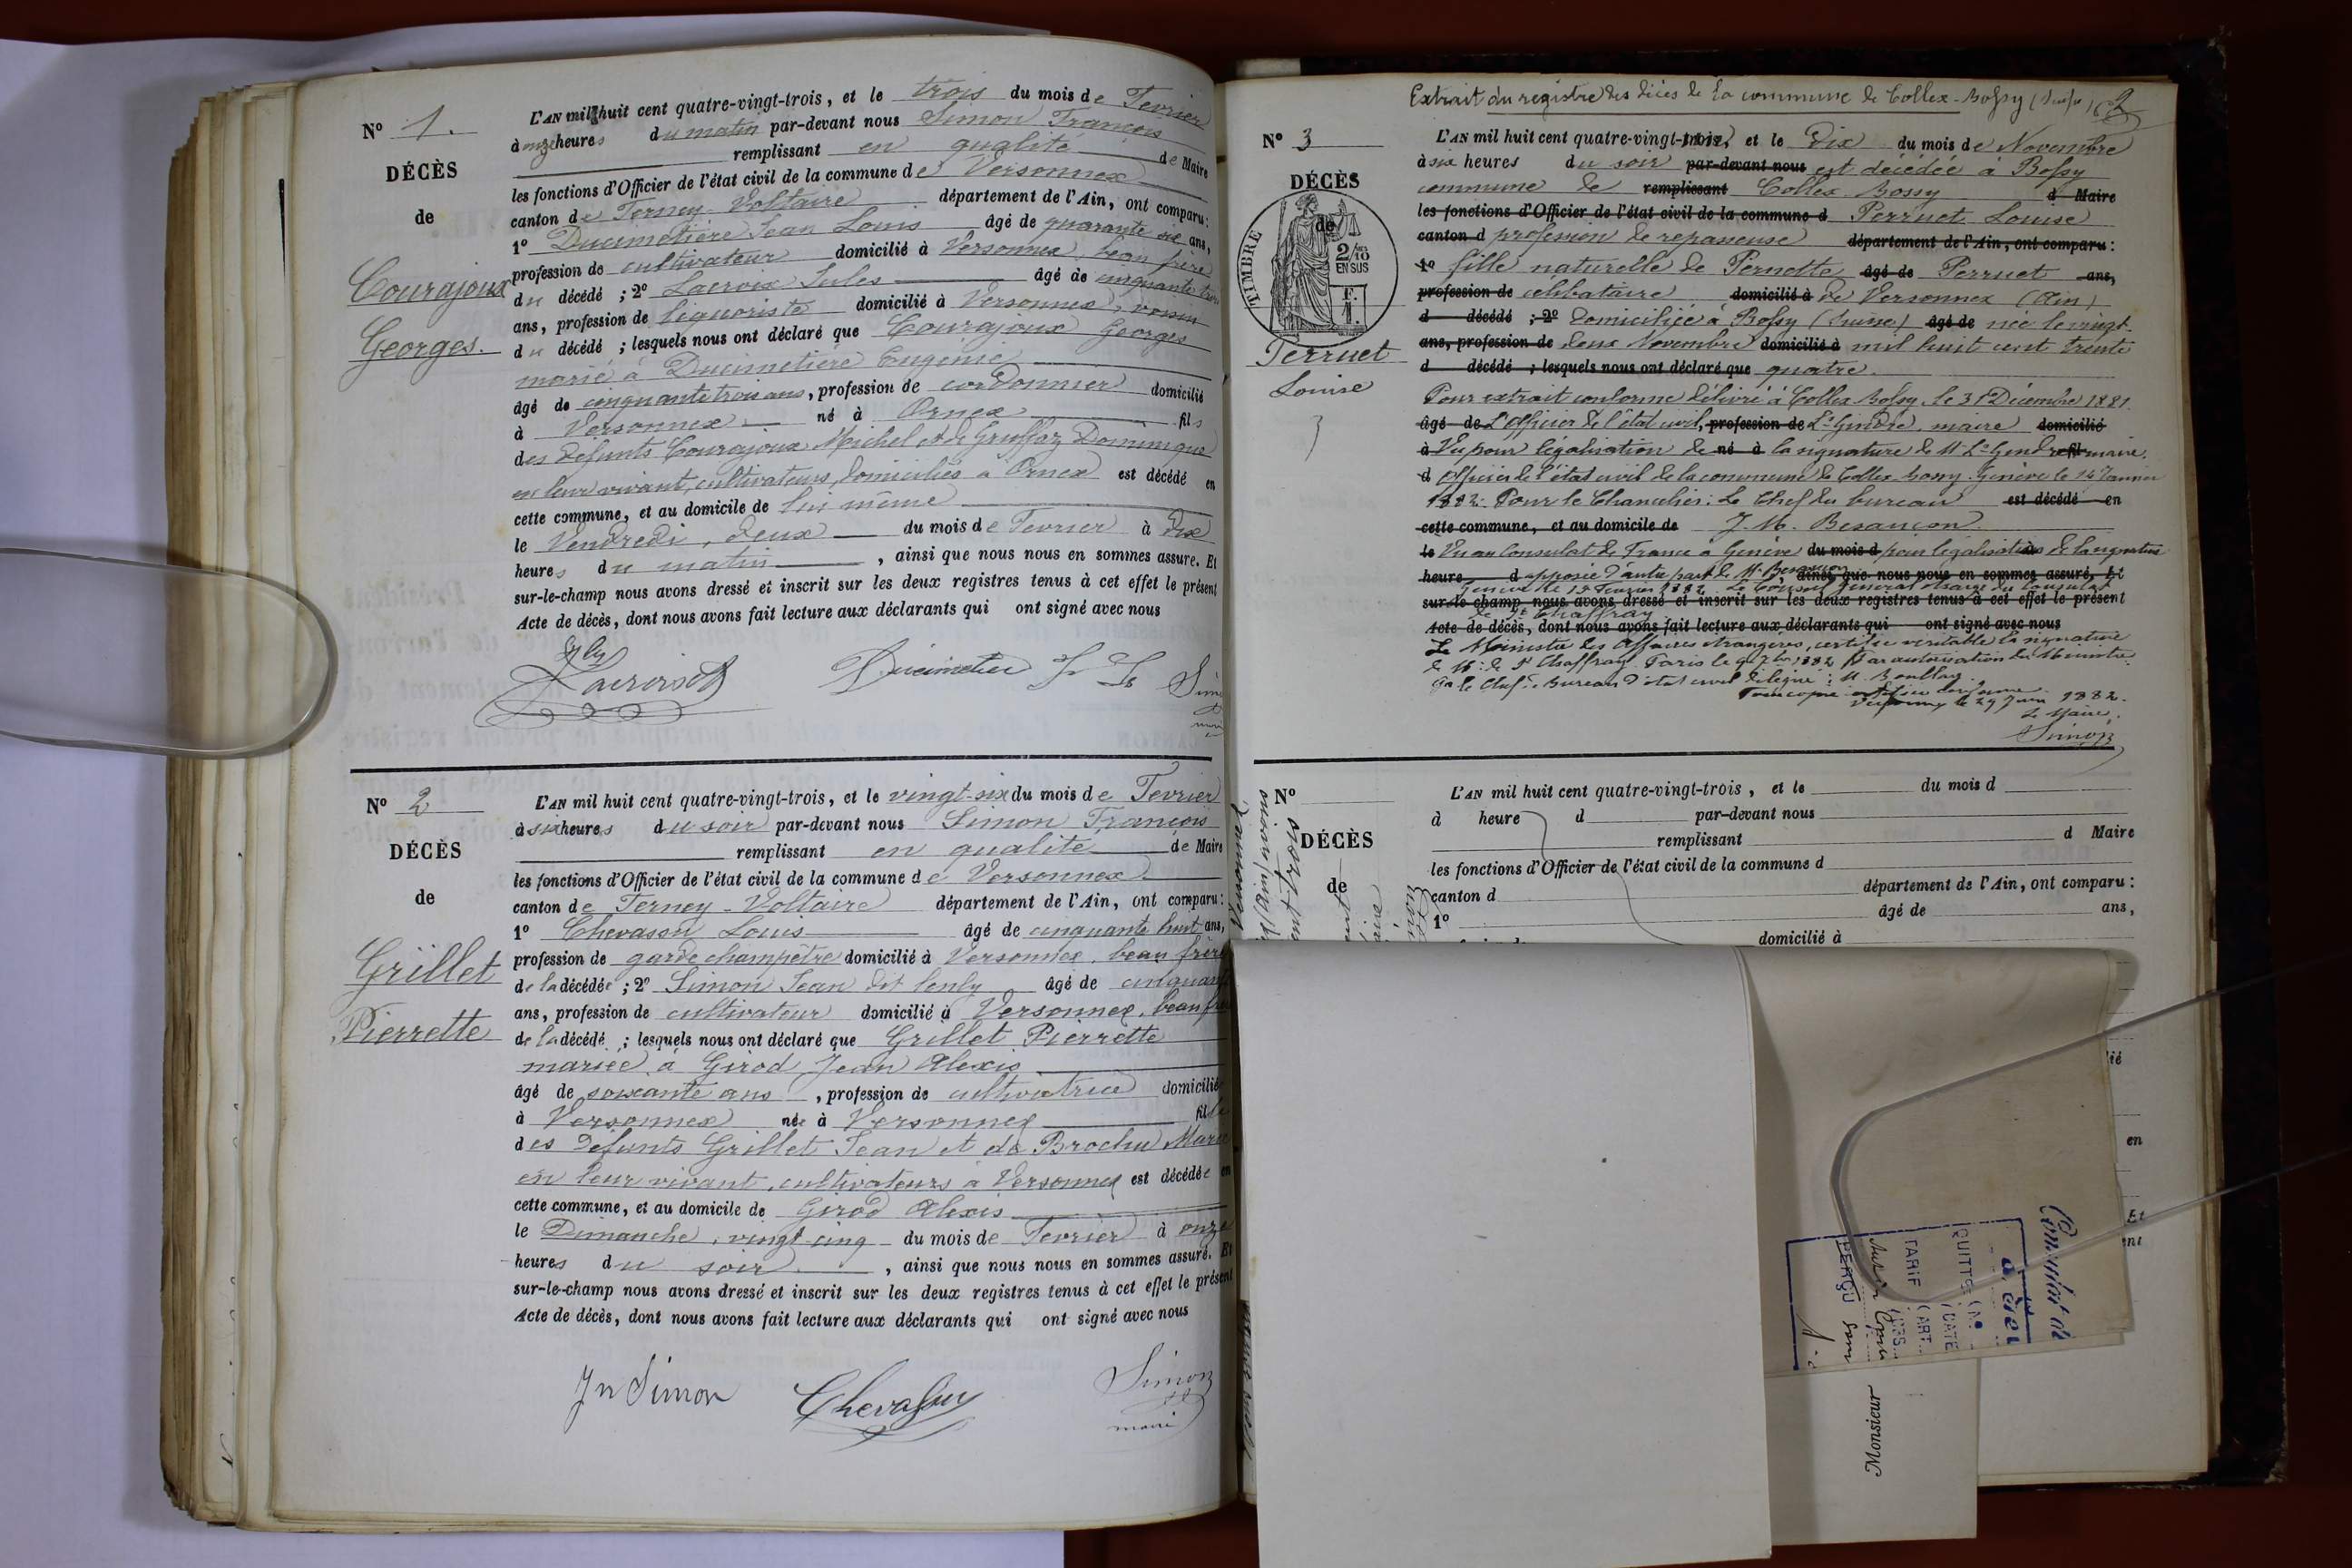 N° 1.
DÉCÈS
de
Courajoux
Georges.
L'AN mil huit cent quatre-vingt-trois, et le trois du mois de Fevrier
à onze heures du matin par-devant nous Simon François
remplissant en qualité de Maire
les fonctions d'Officier de l'état civil de la commune de Versonnex
canton de Ferney-Voltaire département de l'Ain, ont comparu :
1° Ducimetière Jean Louis âgé de quarante six ans,
profession de cultivateur domicilié à Versonnex, beau frère
du décédé ; 2° Lacroix Jules âgé de cinquante trois
ans, profession de liquoriste domicilié à Versonnex, voisin
du décédé ; lesquels nous ont déclaré que Courajoux Georges
marié à Ducimetière Eugénie
âgé de cinquante trois ans, profession de cordonnier domicilié
à Versonnex né à Ornex fils
des défunts Courajoux Michel et de Gruffaz Dominique
en leur vivant, cultivateurs, domiciliés à Ornex est décédé en
cette commune, et au domicile de lui même
le Vendredi, deux du mois de Fevrier à dix
heures du matin, ainsi que nous nous en sommes assuré. Et
sur-le-champ nous avons dressé et inscrit sur les deux registres tenus à cet effet le présent
Acte de décès, dont nous avons fait lecture aux déclarants qui ont signé avec nous
Lacroix Ducimetière
N° 2
DÉCÈS
de
Grillet
Pierrette
L'AN mil huit cent quatre-vingt-trois, et le vingt-six du mois de Fevrier
à six heures du soir par-devant nous Simon François
remplissant en qualité de Maire
les fonctions d'Officier de l'état civil de la commune de Versonnex
canton de Ferney-Voltaire département de l'Ain, ont comparu :
1° Chevassu Louis âgé de cinquante huit ans,
profession de garde champêtre domicilié à Versonnex, beau frère
de la décédée ; 2° Simon Jean dit âgé de cinquante
ans, profession de cultivateur domicilié à Versonnex, beau frère
de la décédé ; lesquels nous ont déclaré que Grillet Pierrette
mariée à Girod Jean Alexis
âgé de soixante ans, profession de cultivatrice domicilié
à Versonnex née à Versonnex fille
des défunts Grillet Jean et de Brochu Marie
en leur vivant, cultivateurs à Versonnex est décédée en
cette commune, et au domicile de Girod Alexis
le Dimanche, vingt-cinq du mois de Fevrier à onze
heures du soir, ainsi que nous nous en sommes assuré. Et
sur-le-champ nous avons dressé et inscrit sur les deux registres tenus à cet effet le présent
Acte de décès, dont nous avons fait lecture aux déclarants qui ont signé avec nous
Jn Simon Chevassu Simon
maire
Extrait du registre des décès de la commune de Collex-Bossy (Suisse) 2
N° 3
DÉCÈS
de
TIMBRE
2/10
EN SUS
Perruet
Louise
3
L'AN mil huit cent quatre-vingt- et le dix du mois de Novembre
à six heures du soir par-devant nous est décédée à Bossy
commune de remplissant Collex-Bossy d Maire
les fonctions d'Officier de l'état civil de la commune d Perruet Louise
canton d profession de repasseuse département de l'Ain, ont comparu :
1° fille naturelle de Pernette âgé de Perruet ans,
profession de célibataire domicilié à de Versonnex (Ain)
d décédé ; 2° domiciliée à Bossy (Suisse) âgé de née le vingt-
ans, profession de deux Novembre domicilié à mil huit cent trente
d décédé ; lesquels nous ont déclaré que quatre.
Pour extrait conforme délivré à Collex-Bossy, le 31 Décembre 1881.
âgé de L'Officier de l'état civil, profession de Ls Gindre, maire domicilié
à Vu pour légalisation de né à la signature de M Ls Gendre fil maire.
d Officier de l'état civil de la commune de Collex-Bossy. Genève le 14 Janvier
1882. Pour le Chancelier : Le Chef du bureau est décédé en
cette commune, et au domicile de J. M. Besançon
le Vu au Consulat de France à Genève du mois d pour légalisation de la signature
heure d apposée d'autre part de Mr Besançon, ainsi que nous nous en sommes assuré. Et
Genève le 1882 Le Consul Général chargé du Consulat
sur-le-champ nous avons dressé et inscrit sur les deux registres tenus à cet effet le présent
de St Chaffray
Acte de décès, dont nous avons fait lecture aux déclarants qui ont signé avec nous
Le Ministre des Affaires étrangères, certifie véritable la signature
de M. de St Chaffray. Paris le 1882 Par autorisation du Ministre
le Chef de Bureau d'état civil délégué :
Versonnex le 29 Juin 1882.
Le Maire,
Simon
N°
DÉCÈS
de
L'AN mil huit cent quatre-vingt-trois, et le du mois d
à heure d par-devant nous
remplissant d Maire
les fonctions d'Officier de l'état civil de la commune d
canton d département de l'Ain, ont comparu :
1° âgé de ans,
domicilié à
en
Et
Consulat de
QUITTE
N°
DATE
TARIF
ART.
PERÇU
Monsieur